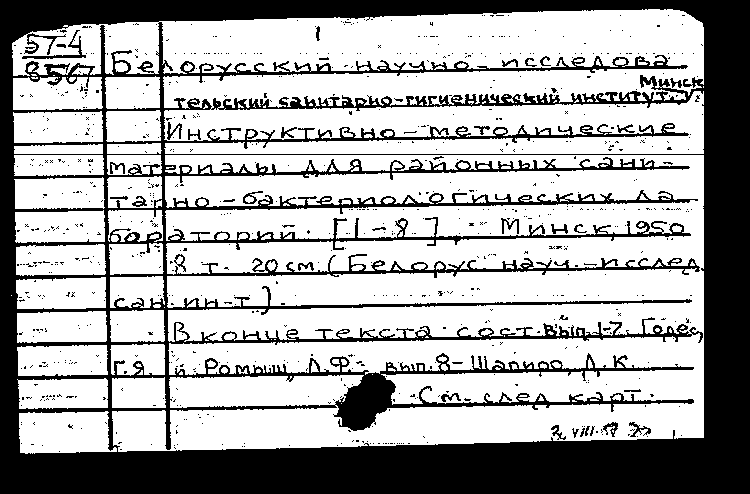 1
57-4
8567
Белорусский научно-исследова
Минск
тельский санитарно-гигиенический институт.
Инструктивно-методические
материалы для районных сани-
тарно-бактериологических ла
бораторий. [1-8]. Минск, 1950
8 т. 20 см. (Белорус. науч.-исслед.
сан. ин-т).
В конце текста сост. вып. 1-7. Годес,
Г.Я. и Ромыш, Л.Ф.; вып. 8-Шапиро, Д.К.
См. след карт.
VIII.